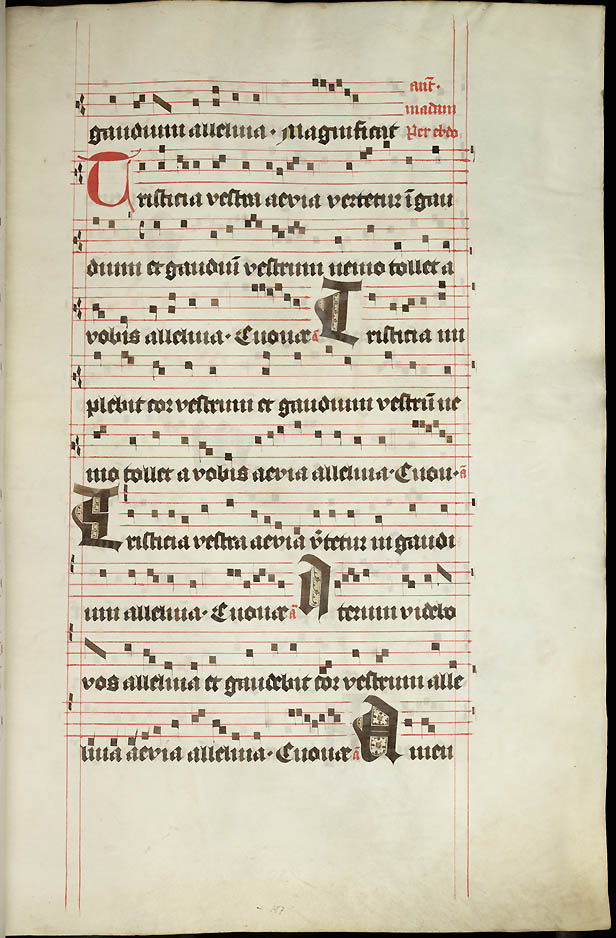 gaudium alleluia · Magnificat
añt.
madum
Per ebdo
Tristicia vestra aevia vertetur ī gau
dium et gaudiū vestrum nemo tollet a
vobis alleluia · Euouae a Tristicia im
plebit cor vestrum et gaudium vestrū ne
mo tollet a vobis aevia alleluia · Euou · a
Tristicia vestra aevia v̄tetur in gaudi
um alleluia · Euouae a Iterum videbo
vos alleluia et gaudebit cor vestrum alle
luia aevia alleluia · Euouae a Amen